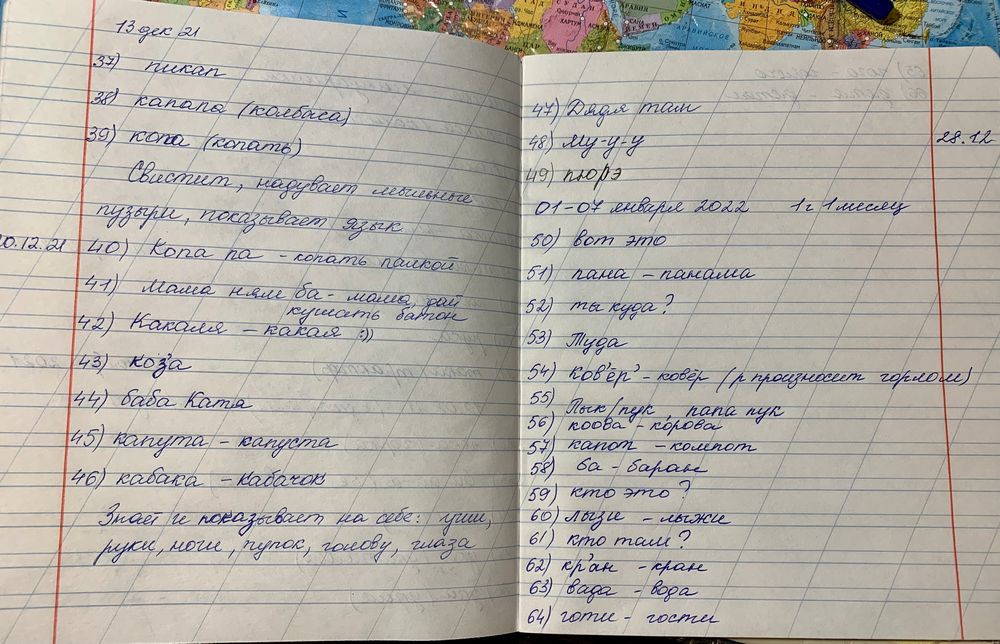 13 дек 21
37) пикап
38) капапа (колбаса)
39) копа (копать)
Свистит, надувает мыльные
пузыри, показывает язык
0.12.21 40) Копа па - копать палкой
41) Мама ням ба - мама, дай
кушать батон
42) Какаля - какая :))
43) коза
44) баба Катя
45) капута - капуста
46) кабака - кабачок
Знает и показывает на себе: уши,
руки, ноги, пупок, голову, глаза
47) Дядя там
48) Му-у-у 28.12
49) пюрэ
01-07 января 2022 1 г 1 месяц
50) вот это
51) пана - панама
52) ты куда?
53) Туда
54) ков'ёр' - ковёр (р произносит горлом)
55) Пык/пук, папа пук
56) коова - корова
57) капот - компот
58) ба - баран
59) кто это?
60) лызи - лыжи
61) кто там?
62) кр'ан - кран
63) вада - вода
64) готи - гости